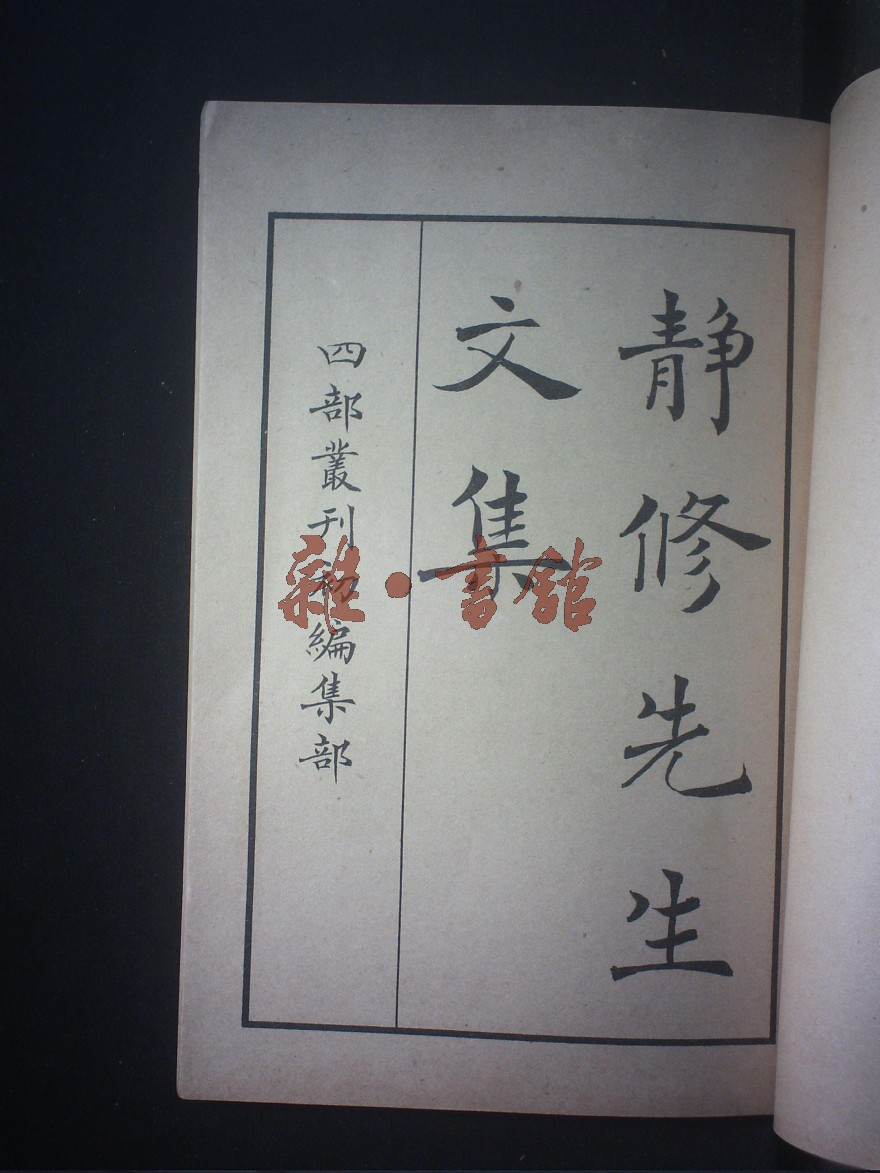 静修先生
文集
四部叢刊初編集部
雜·書館